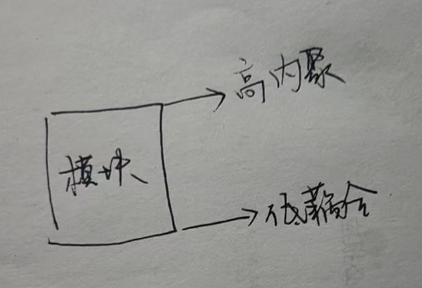 高内聚
模块
低藕合